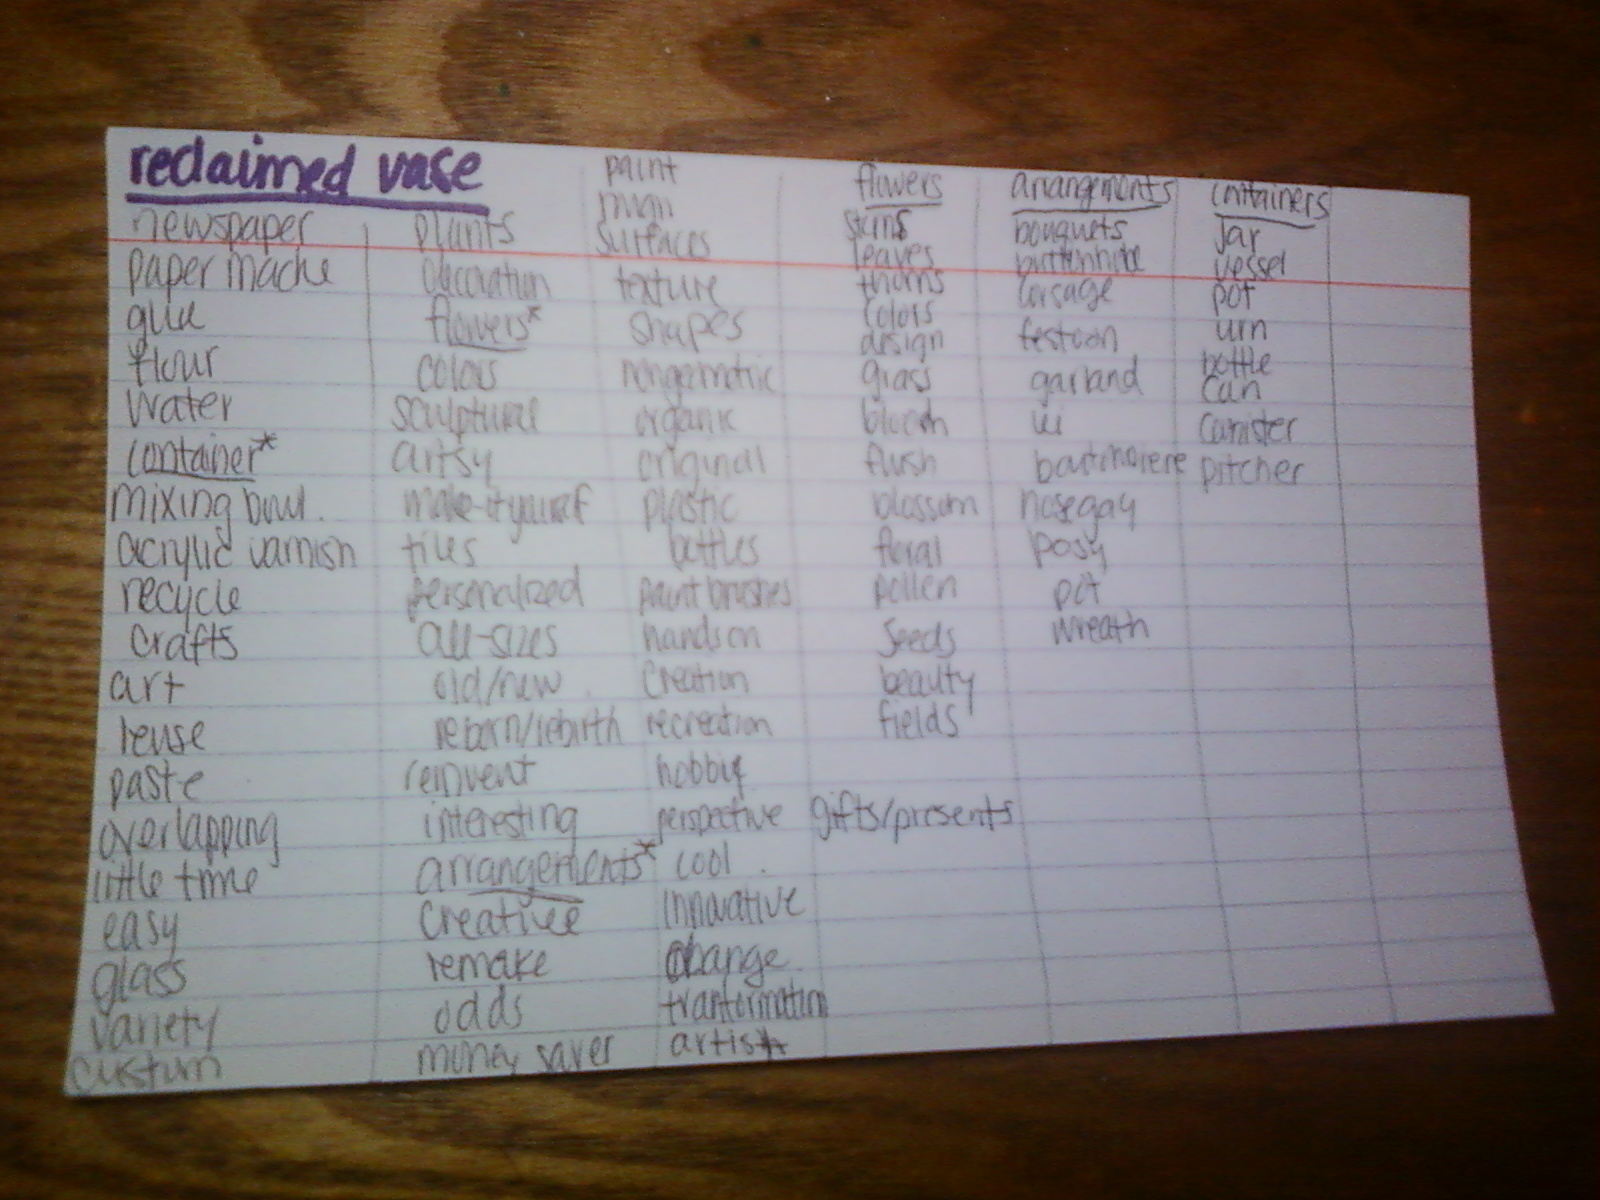 reclaimed vase
newspaper
paper mache
glue
flour
water
container*
mixing bowl.
acrylic varnish
recycle
crafts
art
reuse
paste
overlapping
little time
easy
glass
variety
custum
plants
decoration
flowers*
colors
sculptural
artsy
make-it yourself
tiles
personalized
all-sizes
old/new
reborn/rebirth
reinvent
interesting
arrangements*
creative
remake
odds
money saver
paint
surfaces
texture
shapes
nongeometric
organic
original
plastic
bottles
paint brushes
hands on
creation
recreation
hobby
perspective
cool
innovative
change
tranformation
artist
flowers
stems
leaves
thorns
colors
design
grass
bloom
flush
blossum
floral
pollen
seeds
beauty
fields
gifts/presents
arrangements
bouquets
buttonhole
corsage
festoon
garland
lei
boutinoiere
nosegay
posy
pot
wreath
containers
jar
vessel
pot
urn
bottle
can
canister
pitcher